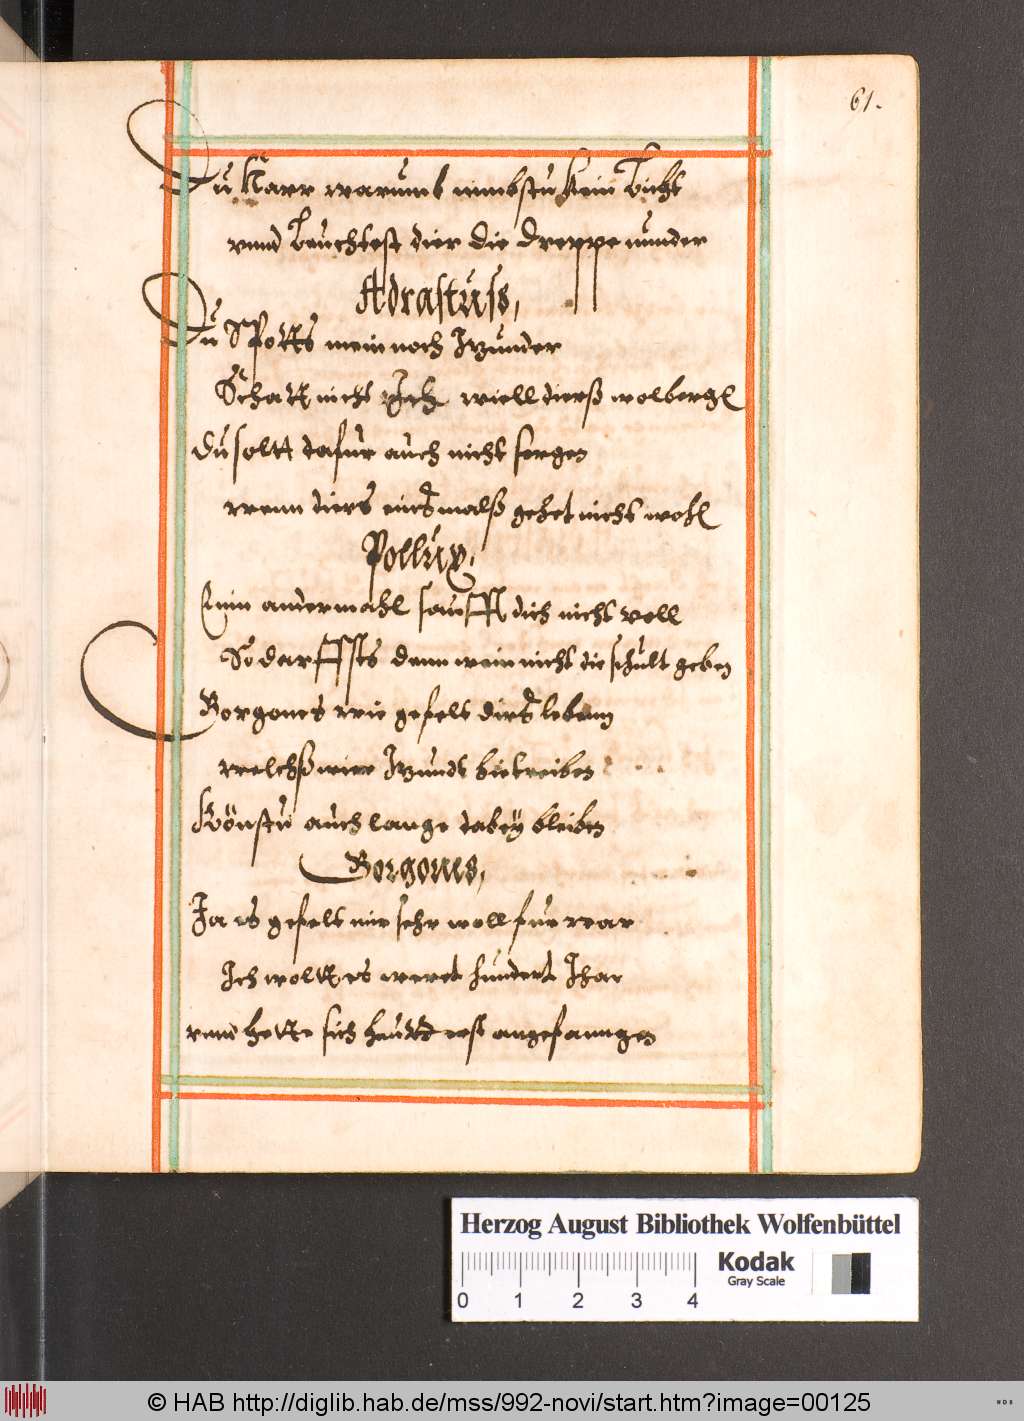 61.
Du Narr warumb nimbstu kein Licht
vnnd Leuchtest dier die Dreppe nunder
Adrastuss,
Du Spotts mein noch Itzunder
Schatt nicht Ich wiell dierß wol bergl
Du soltt dafur auch nicht sorgen
wenn diers einsmalß gehet nicht wohl
Pollux,
Einn andermahl sauff dich nicht voll
So darffsts denn wein nicht die schult geben
Borgones wie gefelt dirs leben
welchß wier Itzundt bie treiben
Könstu auch lange dabey bleiben
Borgonis,
Ja es gefelt mir sehr woll furwar
Ich woltt es weret hundert Ihar
vnnd hette sich heutt erst angefanngen
Herzog August Bibliothek Wolfenbüttel
Kodak
Gray Scale
0 1 2 3 4
© HAB http://diglib.hab.de/mss/992-novi/start.htm?image=00125